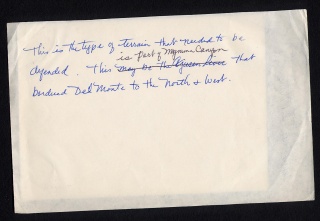 This is the type of terrain that needed to be
is part of Mymma Canyon
defended. This may be the Lyson line that
bordered Del Monte to the North & West.